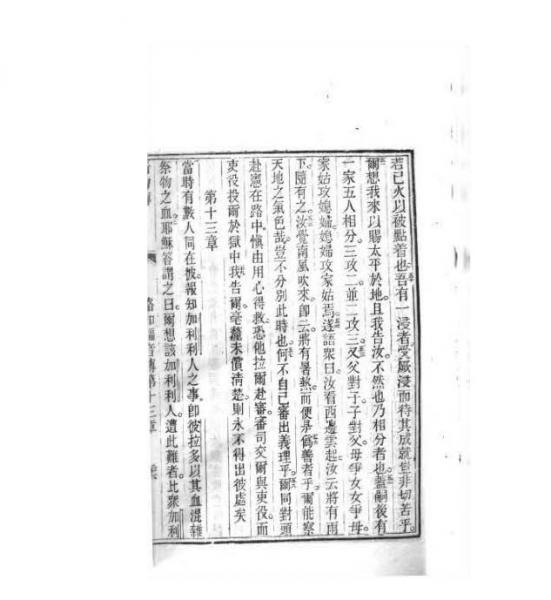 若已火以被點着也吾有一浸者受厥浸而待其成就豈非切苦乎
爾想我來以賜太平於地且我告汝不然也乃相分者也蓋嗣後有
一家五人相分三攻二並二攻三父對子子對父母爭女女爭母
家姑攻媳婦媳婦攻家姑焉遂語眾曰汝看西邊雲起汝云將有雨
下隨有之汝覺南風吹來即云將有暑熱而便是偽善者乎爾能察
天地之氣色哉豈不分別此時也何不自己審出義理乎爾同對頭
赴憲在路中慎由用心得救恐他拉爾赴審審司交爾與吏役而
吏役投爾於獄中我告爾毫釐未償清楚則永不得出彼處矣
第十三章
當時有數人同在彼報知加利利人之事即彼拉多以其血混雜
祭物之血耶穌答謂之曰爾想該加利利人遭此難者比眾加利
路加福音傳第十三章